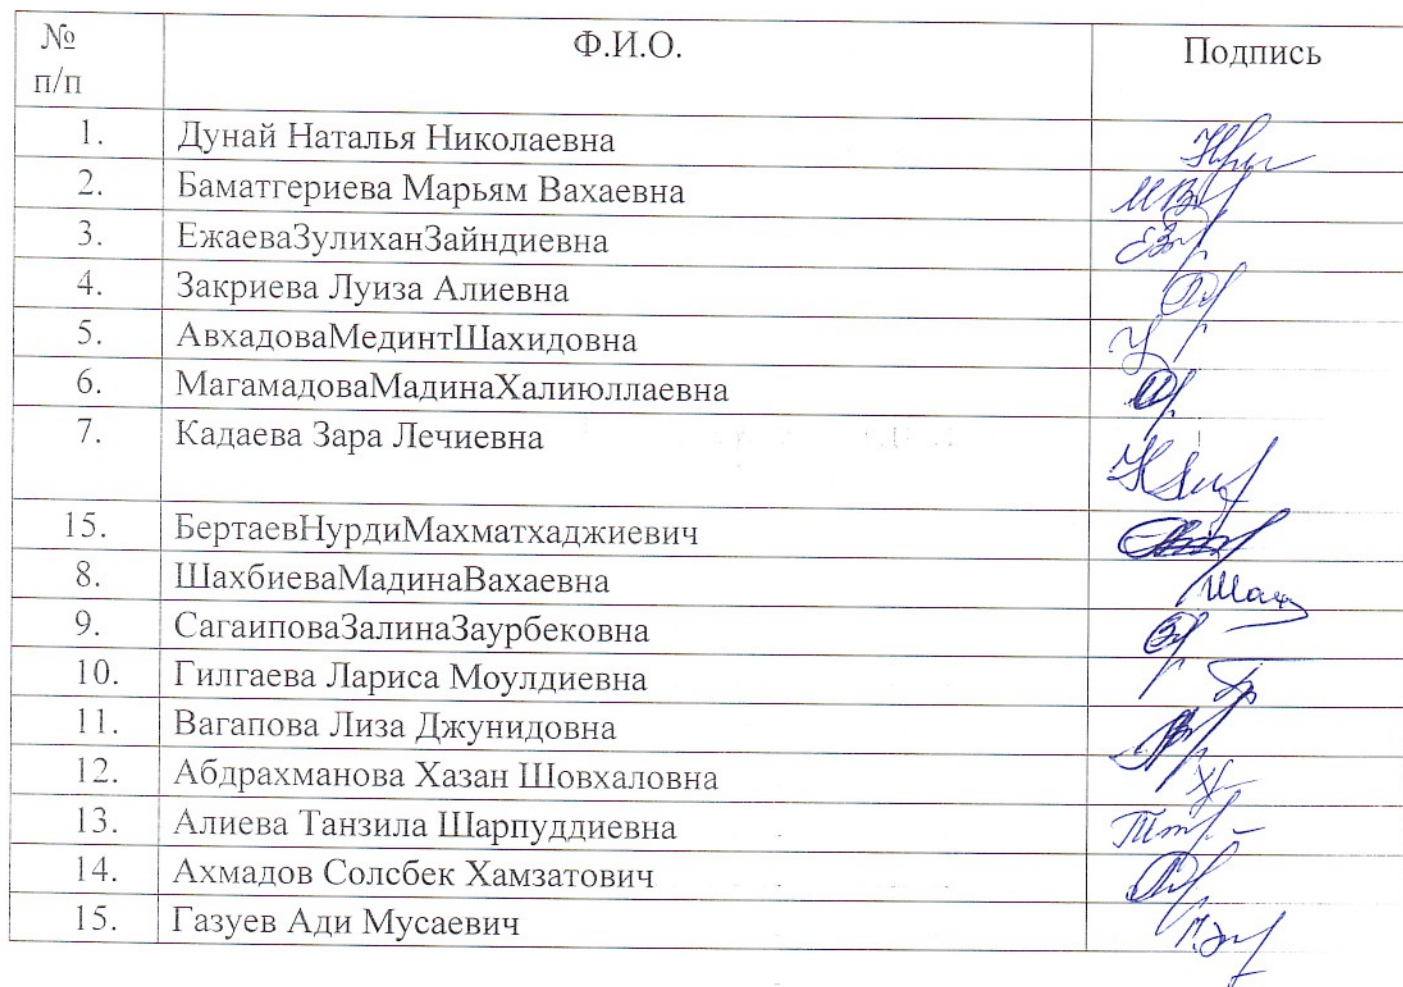 № п/п Ф.И.О. Подпись
1. Дунай Наталья Николаевна
2. Баматгериева Марьям Вахаевна
3. ЕжаеваЗулиханЗайндиевна
4. Закриева Луиза Алиевна
5. АвхадоваМединтШахидовна
6. МагамадоваМадинаХалиюллаевна
7. Кадаева Зара Лечиевна
15. БертаевНурдиМахматхаджиевич
8. ШахбиеваМадинаВахаевна
9. СагаиповаЗалинаЗаурбековна
10. Гилгаева Лариса Моулдиевна
11. Вагапова Лиза Джунидовна
12. Абдрахманова Хазан Шовхаловна
13. Алиева Танзила Шарпуддиевна
14. Ахмадов Солсбек Хамзатович
15. Газуев Ади Мусаевич